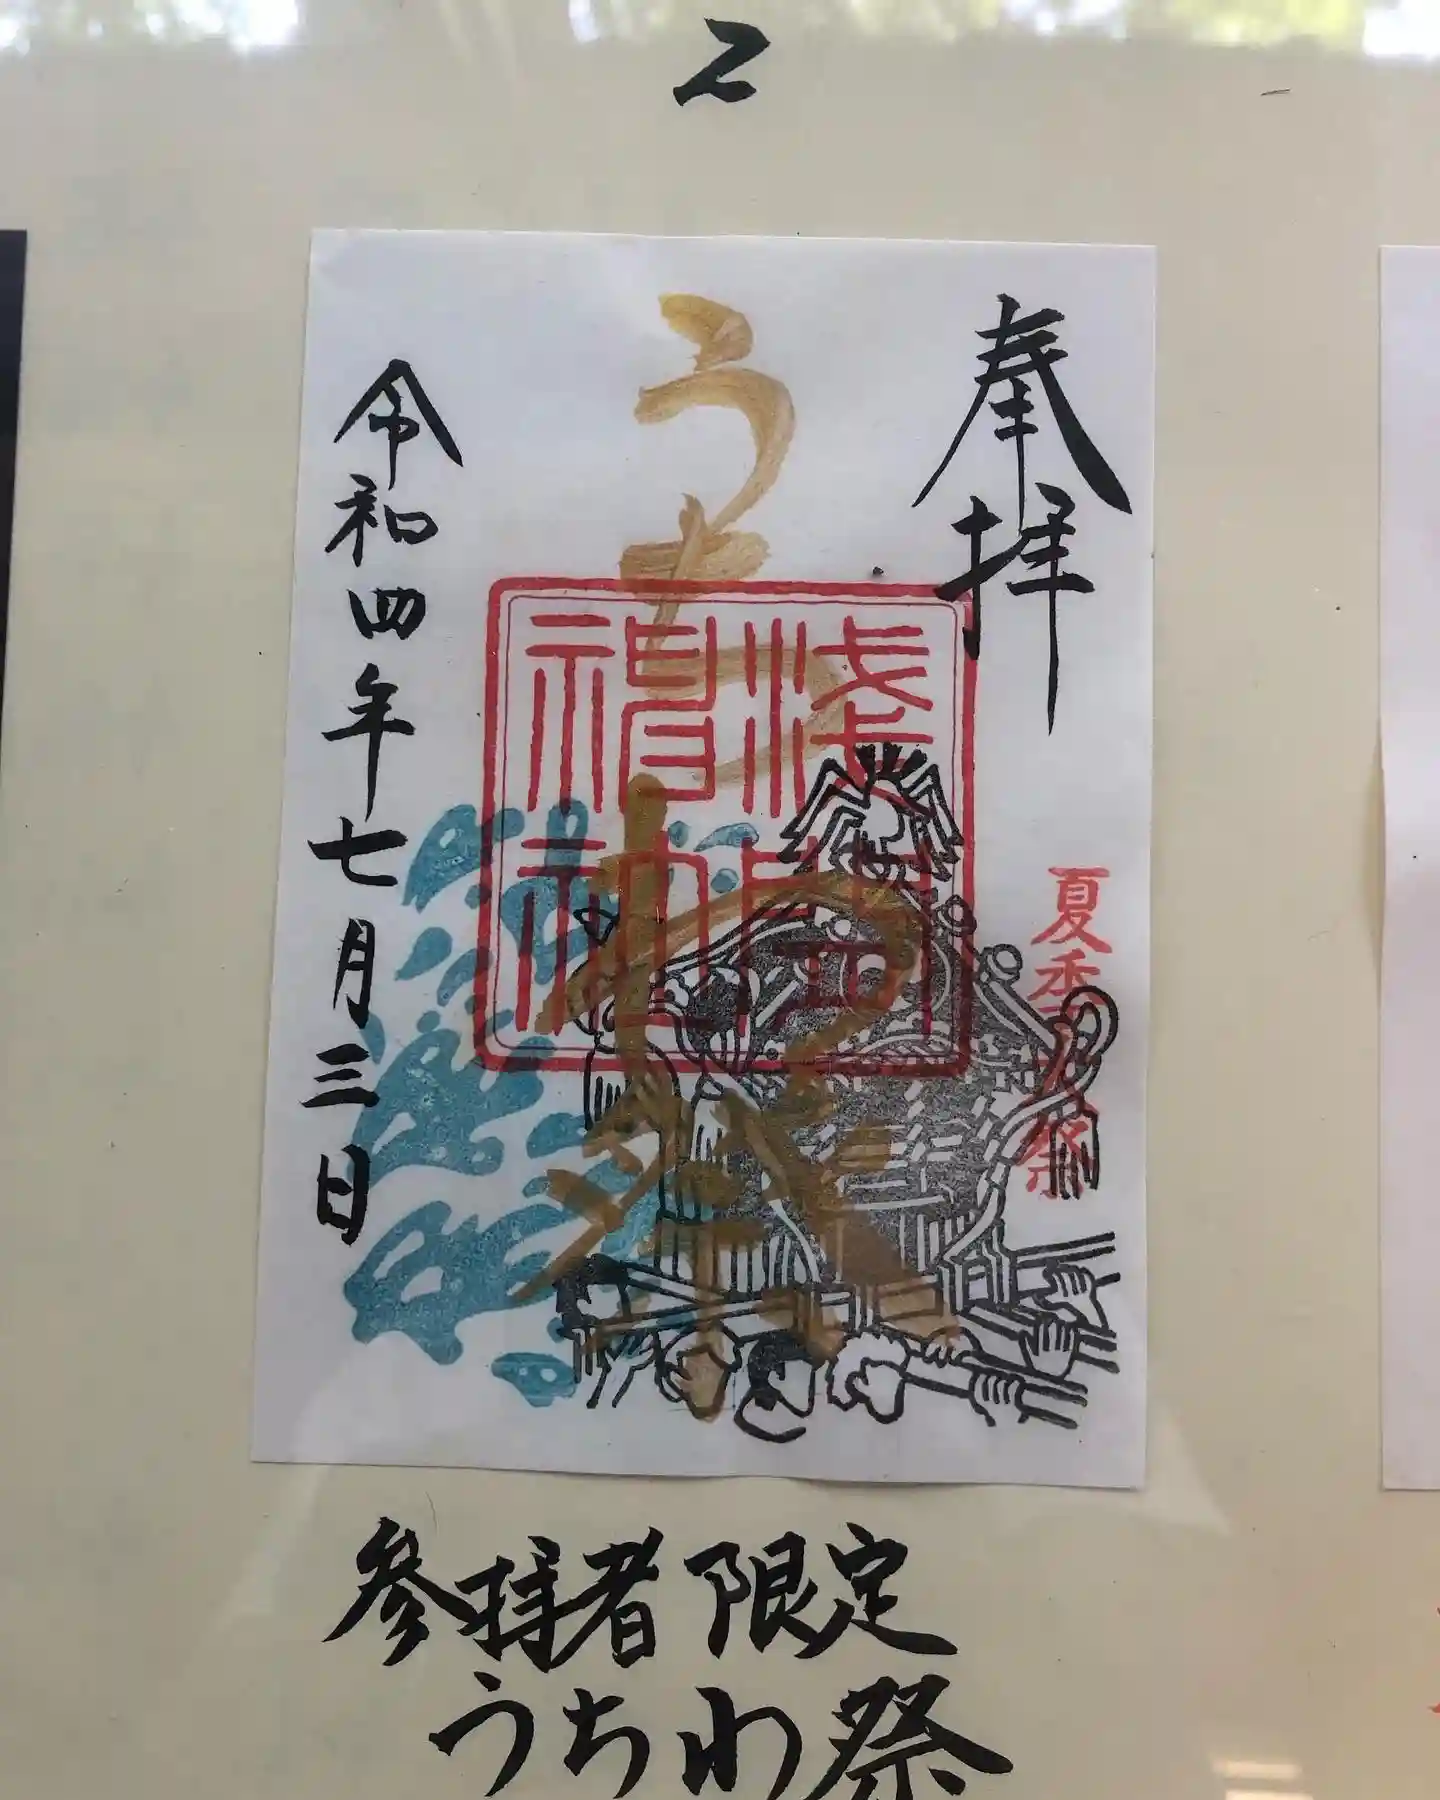 2
奉拝
うちわ祭
浅間
神社
夏季大祭
令和四年七月三日
参拝者限定
うちわ祭